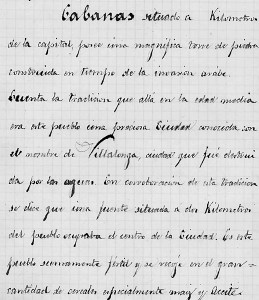 Cabanas situado a Kilometros
de la capital, posee una magnifica torre de piedra
construida en tiempo de la invasion arabe.
Cuenta la tradicion que alla en la edad media
era este pueblo una preciosa Ciudad conocida con
el nombre de Villalonga, ciudad que fué destrui
da por las aguas. En corroboracion de esta tradicion
se dice que una fuente situada a dos Kilometros
del pueblo ocupaba el centro de la Ciudad. Es este
pueblo sumamente fertil y se recoge en el gran
cantidad de cereales especialmente maiz y Aceite.